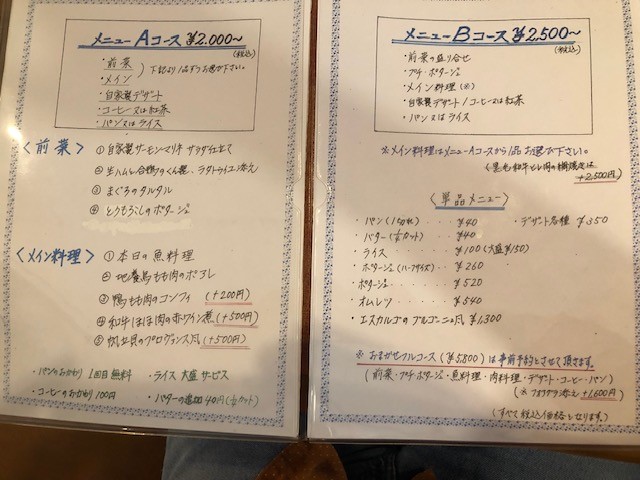 メニュー Aコース ¥2,000〜
(税込)
・前菜
・メイン
下記より1品ずつお選び下さい。
・自家製デザート
・コーヒー又は紅茶
・パン又はライス
〈前菜〉
① 自家製サーモンマリネ サラダ仕立て
② 生ハムと合鴨のくん製、ラタトゥイユ添え
③ まぐろのタルタル
④ とうもろこしのポタージュ
〈メイン料理〉
① 本日の魚料理
② 地養鳥もも肉のポワレ
③ 鴨もも肉のコンフィ (+200円)
④ 和牛ほほ肉の赤ワイン煮 (+500円)
⑤ 帆立貝のプロヴァンス風 (+500円)
・パンのおかわり 1回目無料
・ライス 大盛サービス
・コーヒーのおかわり 100円
・バターの追加 40円
メニュー Bコース ¥2,500〜
(税込)
・前菜の盛り合せ
・プチ・ポタージュ
・メイン料理 (※)
・自家製デザート / コーヒー又は紅茶
・パン又はライス
※メイン料理はメニューAコースから1品お選び下さい。
+2,500円)
〈単品メニュー〉
・パン (1切れ) ・・・ ¥40
・デザート各種 ¥350
・バター ・・ ¥40
・ライス ・・・・ ¥100 (大盛¥150)
・ポタージュ (ハーフサイズ)・ ¥260
・ポタージュ ・・・・ ¥520
・オムレツ ・・・・ ¥540
・エスカルゴのブルゴーニュ風 ¥1,300
※ おまかせフルコース (¥5,800) は事前予約とさせて頂きます。
(前菜・プチ・ポタージュ・魚料理・肉料理・デザート・コーヒー・パン)
(※ フォアグラ添え +1,600円)
(すべて税込価格となります)